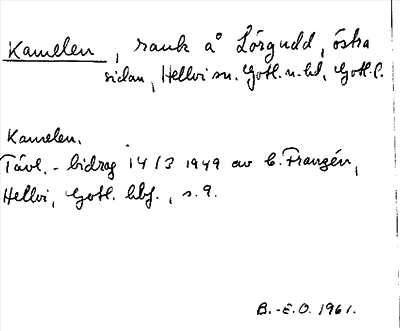 Kamelen, rauk å Lörgudd, östra
sidan, Hellvi sn. Gotl. n. hd, Gotl. l.
Kamelen.
Tävl.-bidrag 14/3 1949 av C. Franzén,
Hellvi, Gotl. hbf., s. 9.
B.-E.O. 1961.